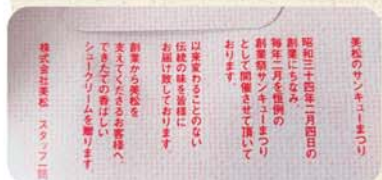 美松のサンキューまつり
昭和三十四年二月四日の
創業にちなみ
毎年二月を恒例の
創業祭サンキューまつり
として開催させて頂いて
おります。
以来変わることのない
伝統の味を皆様に
お届け致しております。
創業から美松を
支えてくださるお客様へ、
できたての香ばしい
シュークリームを贈ります。
株式会社美松 スタッフ一同